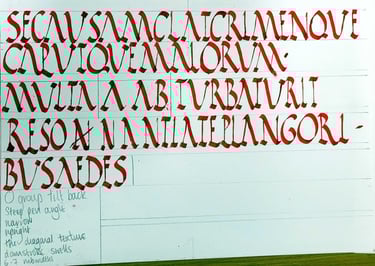 SECAUSAMCLATCRIMENQUE
CAPUTQUEMALORUM·
MULTA A AB. TURBATURIT
RESO A NANTIATEPLANGORI-
BUSAEDES
O group tilt back
Steep pen angle
narrow
upright
the diagonal texture
downstroke swells
6-7 nibwidths